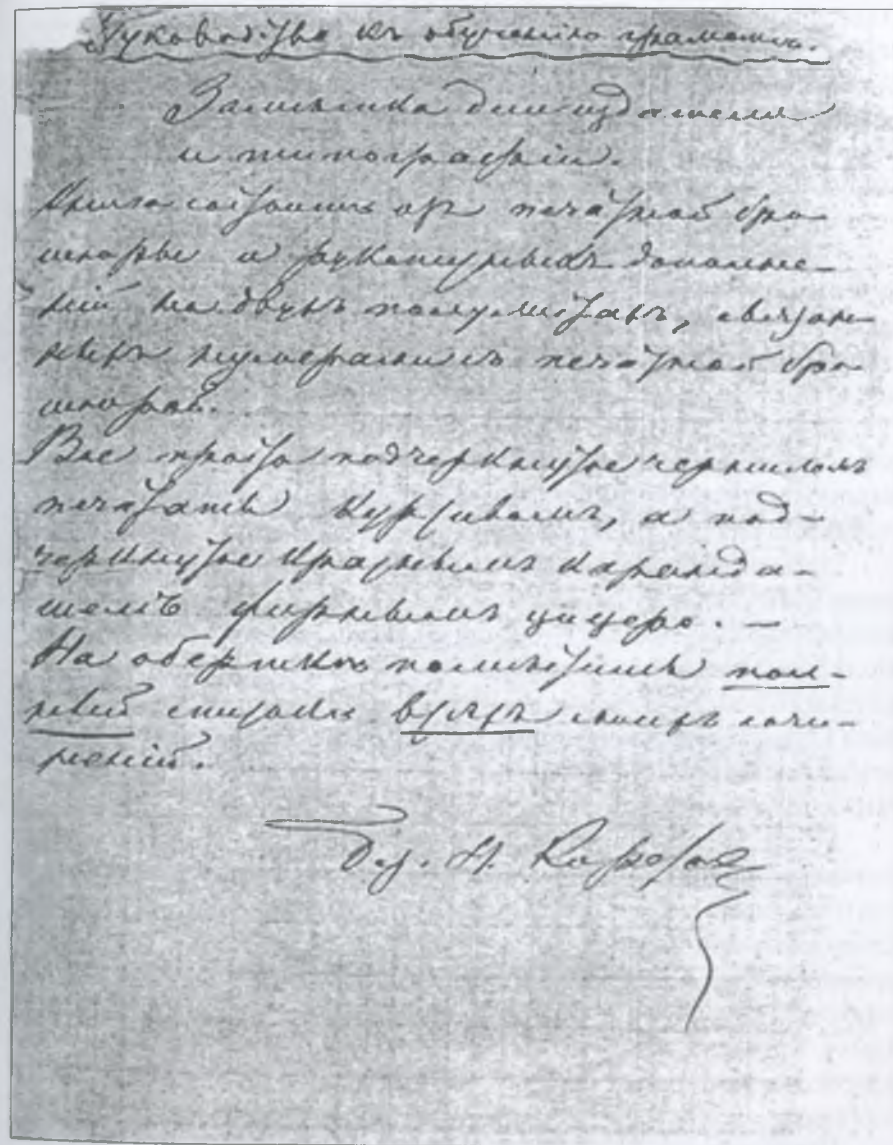 Руководство къ обученію грамотѣ.
Замѣтка для издателя
и типографіи.
Книга состоитъ изъ печатной бро-
шюры и рукописныхъ дополне-
ній на двухъ полулистахъ, связан-
ныхъ нумерами съ печатной бро-
шюрой.
Все просто подчеркнутое чернилами
печатать курсивомъ, а под-
черкнутое краснымъ каранда-
шемъ жирнымъ цицеро. —
На оберткѣ помѣстить пол-
ный списокъ всѣхъ моихъ сочи-
неній.
Бар. Н. Корфъ